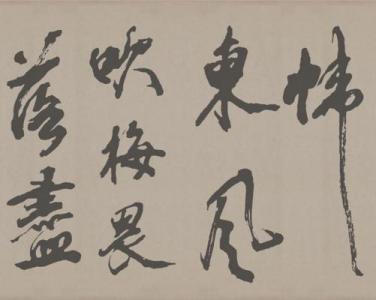 幃
東風
吹梅畏
落盡